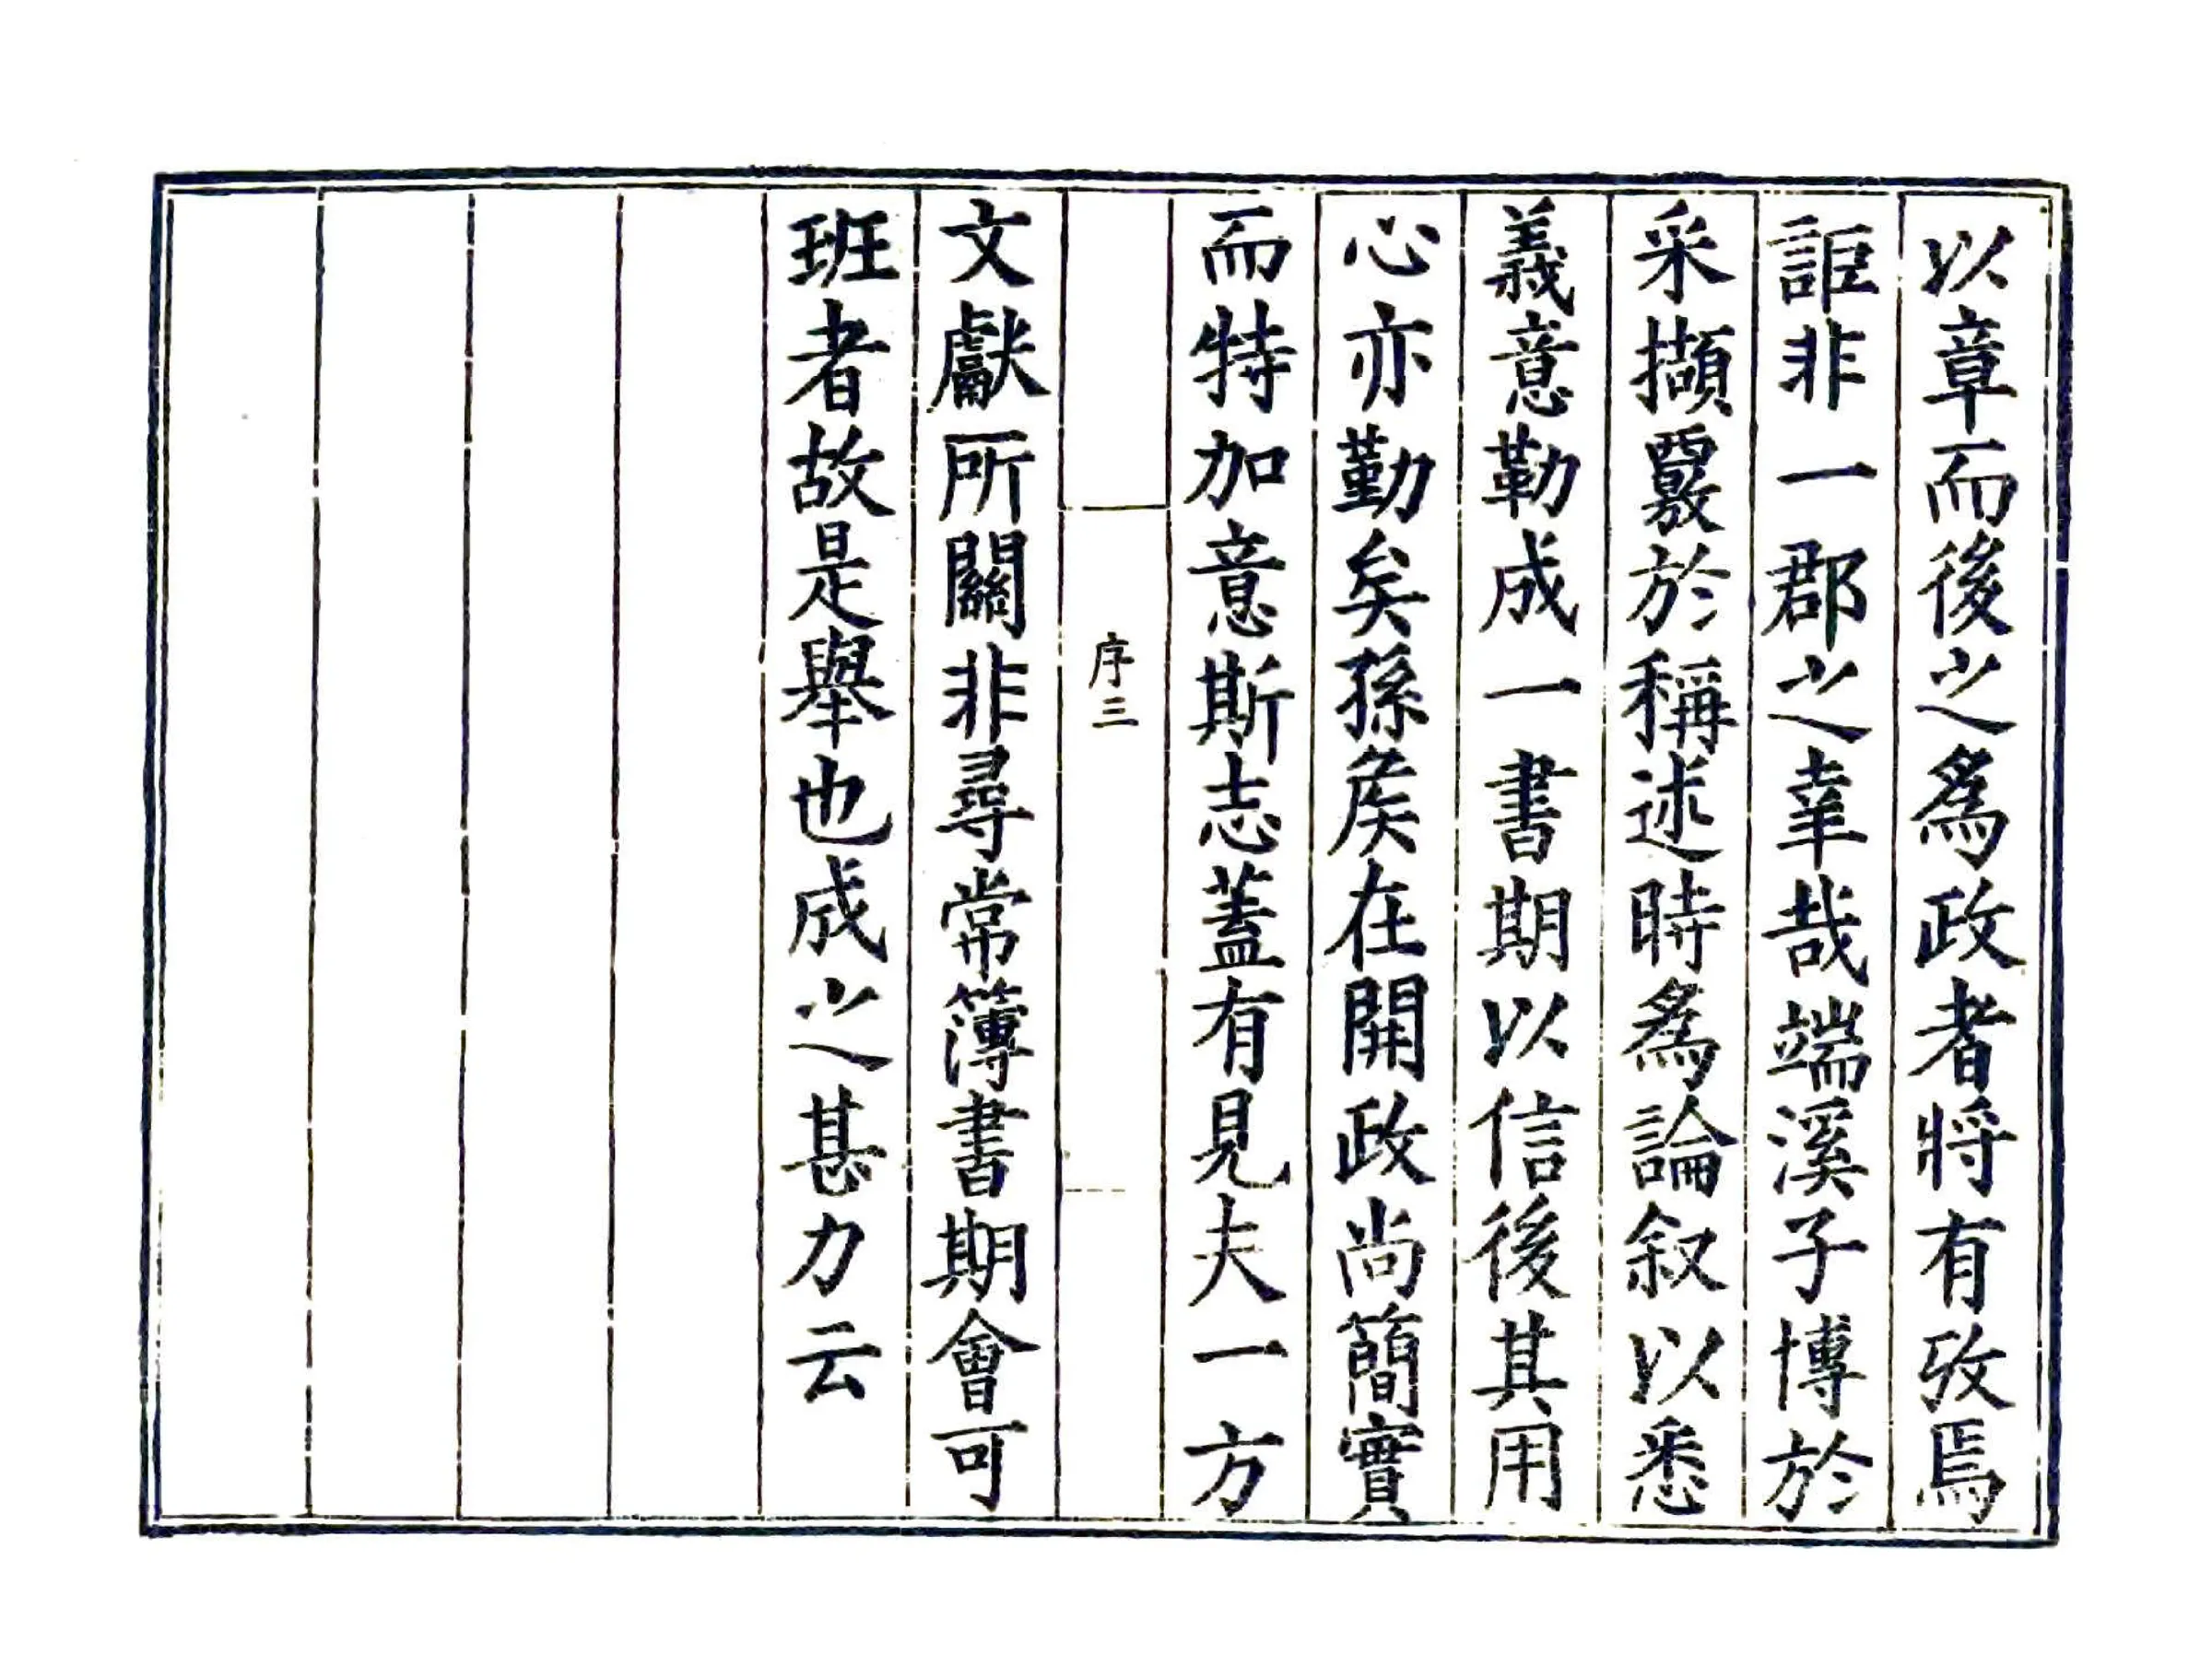 以章而後之爲政者將有攷焉
詎非一郡之幸哉端溪子博於
采擷覈於稱述時爲論叙以悉
義意勒成一書期以信後其用
心亦勤矣孫矦在開政尚簡實
而特加意斯志蓋有見夫一方
序三
文獻所關非尋常簿書期會可
班者故是舉也成之甚力云